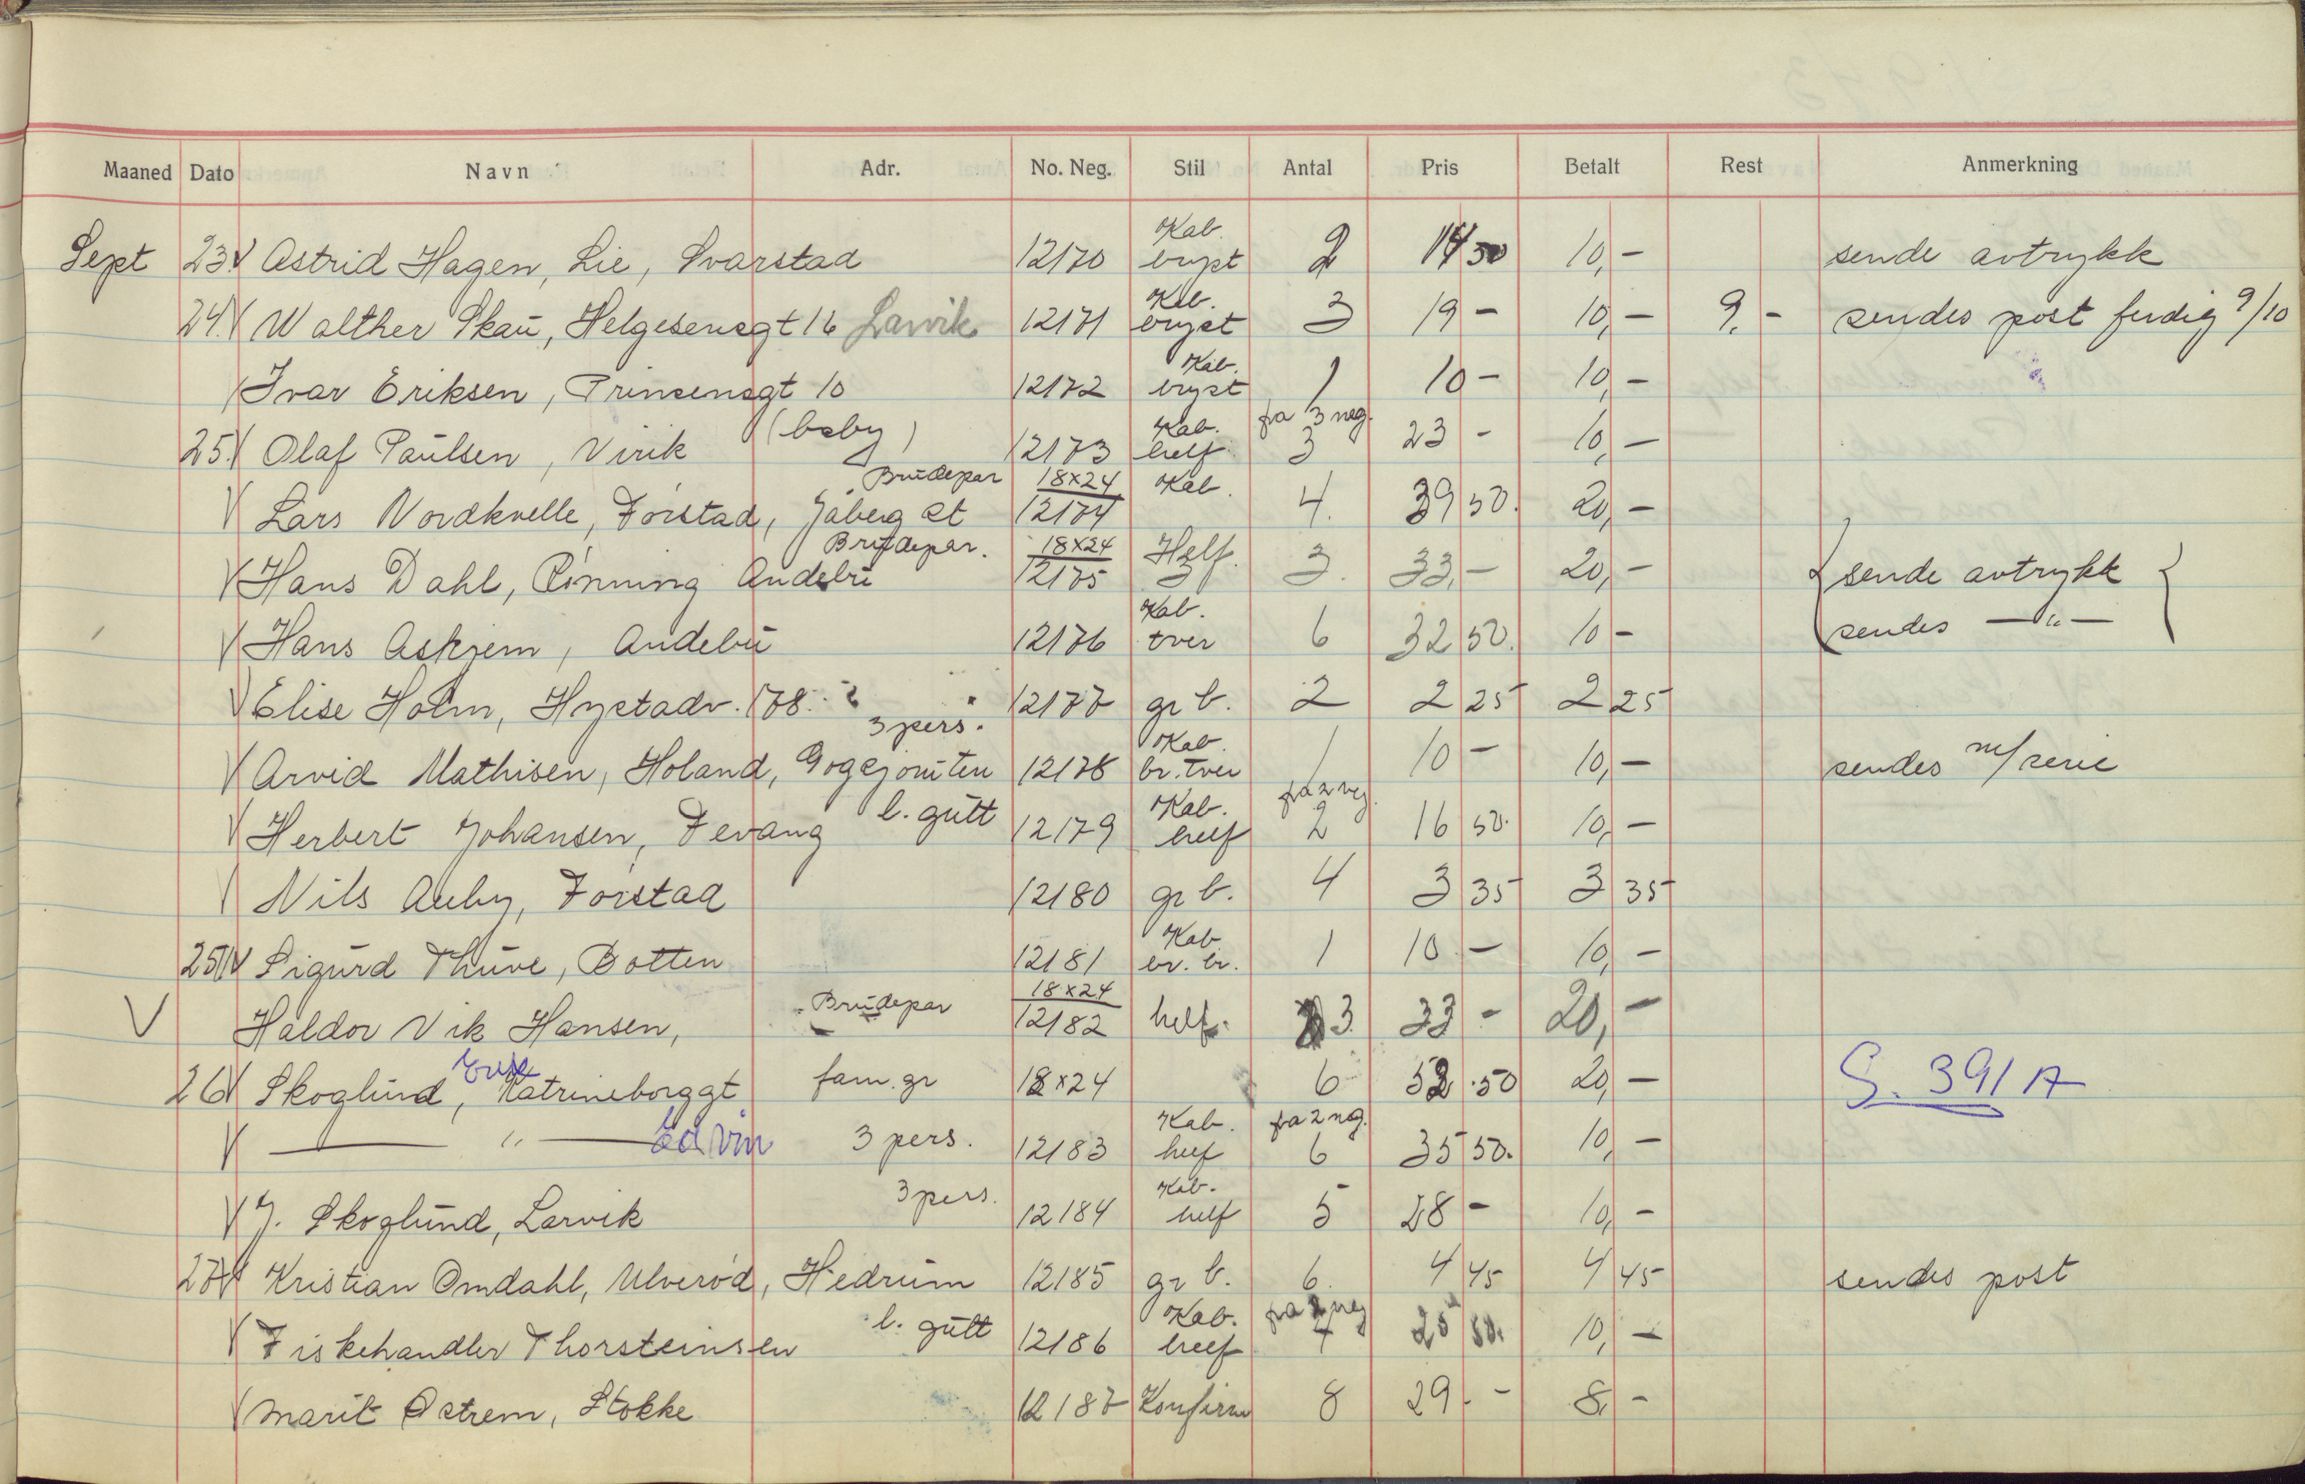 Maaned Dato Navn Adr. No. Neg. Stil Antal Pris Betalt Rest Anmerkning
Sept 23. V Astrid Hagen, Lie, Svarstad 12170 Kab. bryst 2 14 50 10,- sende avtrykk
24. V Walther Skau, Helgesensgt 16 Larvik 12171 Kab. bryst 3 19 - 10,- 9,- sendes post ferdig 9/10
Ivar Eriksen, Prinsensgt 10 12172 Kab. bryst 1 10 - 10,-
25. V Olaf Paulsen, Virik (baby) 12173 Kab. helf fra 3 neg. 3 23 - 10,-
V Lars Nordkvelle, Torstad, Jåberg st Brudepar 18x24 12174 Kab. 4. 39 50. 20,-
V Hans Dahl, Rønning Andebu Brudepar. 18x24 12175 Helf. 3. 33,- 20,- sende avtrykk
V Hans Askjem, Andebu 12176 Kab. tver 6 32 50. 10 - sendes —"—
V Elise Holm, Hystadv. 178. 12177 gr b. 2 2 25 2 25
V Arvid Mathisen, Holand, Gogsjøruten 3 pers. 12178 Kab. br. tver 1 10 - 10,- sendes m/serie
V Herbert Johansen, Tevang l. gutt 12179 Kab. helf fra 2 neg. 2 16 50. 10,-
V Nils Auby, Torstad 12180 gr b. 4 3 35 3 35
25 V Sigurd Thuve, Botten 12181 Kab. br. br. 1 10 - 10,-
V Haldor Vik Hansen, Brudepar 18x24 12182 helf. 3 33 - 20,-
26 V Skoglund, Katrineborggt fam. gr 18x24 6 52.50 20,- S. 391 A
V — " — Edvin 3 pers. 12183 Kab. helf fra 2 neg. 6 35 50. 10,-
V J. Skoglund, Larvik 3 pers. 12184 Kab. helf 5 28 - 10,-
27 V Kristian Omdahl, Ulverød, Hedrum 12185 gr b. 6. 4 45 4 45 sendes post
V Fiskehandler Thorsteinsen l. gutt 12186 Kab. helf fra 2 neg 4 25 50. 10,-
V Marit Østrem, Stokke 12187 Konfirm 8 29.- 8,-